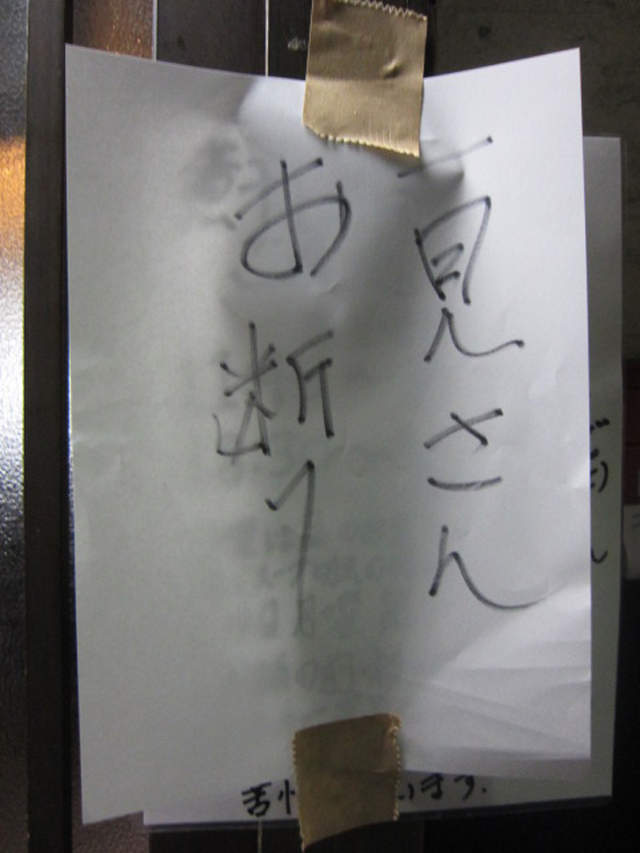 一見さん
お断り
います.